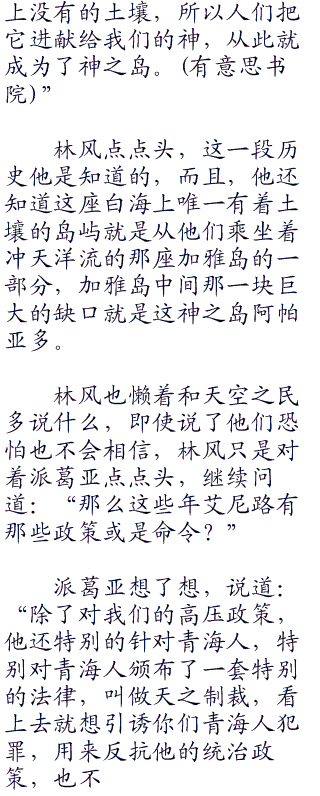 上没有的土壤，所以人们把
它进献给我们的神，从此就
成为了神之岛。(有意思书
院)”
林风点点头，这一段历
史他是知道的，而且，他还
知道这座白海上唯一有着土
壤的岛屿就是从他们乘坐着
冲天洋流的那座加雅岛的一
部分，加雅岛中间那一块巨
大的缺口就是这神之岛阿帕
亚多。
林风也懒着和天空之民
多说什么，即使说了他们恐
怕也不会相信，林风只是对
着派葛亚点点头，继续问
道：“那么这些年艾尼路有
那些政策或是命令？”
派葛亚想了想，说道：
“除了对我们的高压政策，
他还特别的针对青海人，特
别对青海人颁布了一套特别
的法律，叫做天之制裁，看
上去就想引诱你们青海人犯
罪，用来反抗他的统治政
策，也不